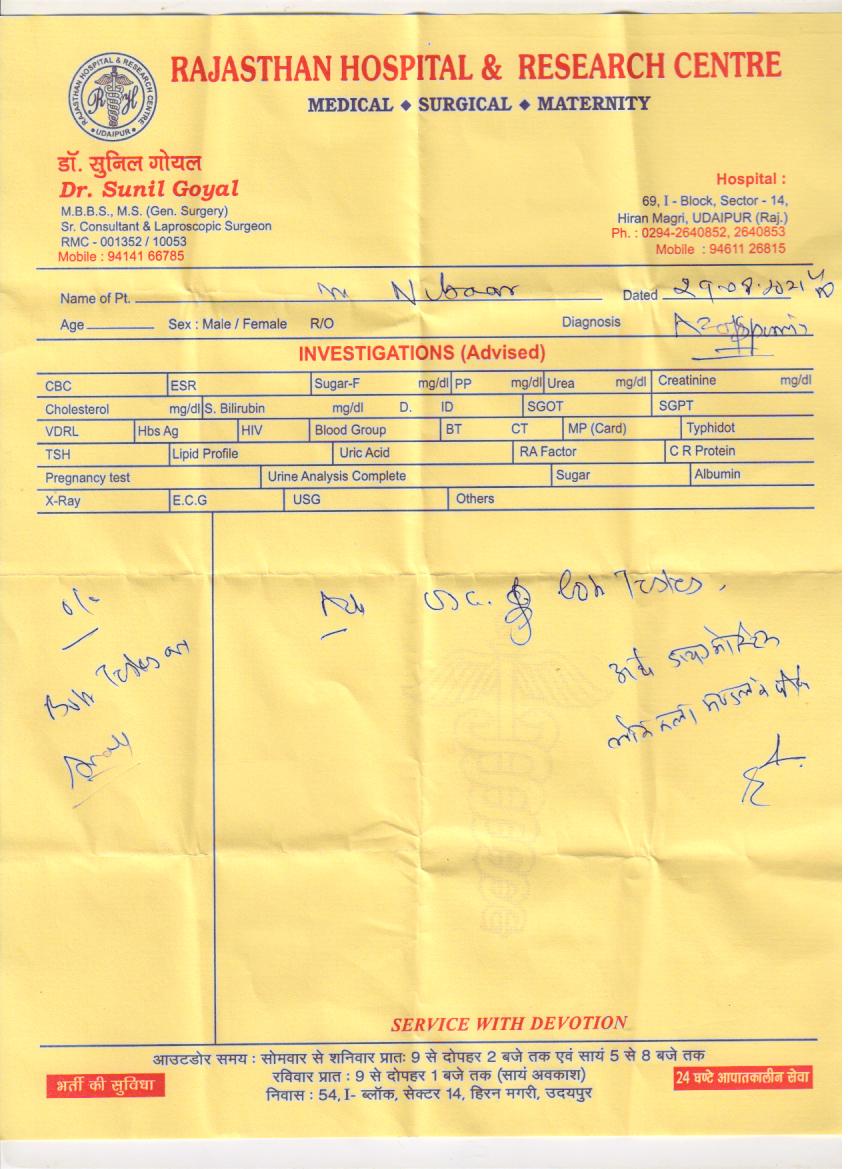 RAJASTHAN HOSPITAL & RESEARCH CENTRE
MEDICAL ◆ SURGICAL ◆ MATERNITY
RAJASTHAN HOSPITAL & RESEARCH CENTRE
R H
• UDAIPUR •
डॉ. सुनिल गोयल
Dr. Sunil Goyal
M.B.B.S., M.S. (Gen. Surgery)
Sr. Consultant & Laproscopic Surgeon
RMC - 001352 / 10053
Mobile : 94141 66785
Hospital :
69, I - Block, Sector - 14,
Hiran Magri, UDAIPUR (Raj.)
Ph. : 0294-2640852, 2640853
Mobile : 94611 26815
Name of Pt. Dated 29.08.2021
Age Sex : Male / Female R/O Diagnosis
INVESTIGATIONS (Advised)
CBC ESR Sugar-F mg/dl PP mg/dl Urea mg/dl Creatinine mg/dl
Cholesterol mg/dl S. Bilirubin mg/dl D. ID SGOT SGPT
VDRL Hbs Ag HIV Blood Group BT CT MP (Card) Typhidot
TSH Lipid Profile Uric Acid RA Factor C R Protein
Pregnancy test Urine Analysis Complete Sugar Albumin
X-Ray E.C.G USG Others
Adv Both Testes.
O/E
Both Testes
अर्थ डायग्नोस्टिक
SERVICE WITH DEVOTION
आउटडोर समय : सोमवार से शनिवार प्रातः 9 से दोपहर 2 बजे तक एवं सायं 5 से 8 बजे तक
रविवार प्रात : 9 से दोपहर 1 बजे तक (सायं अवकाश)
निवास : 54, I- ब्लॉक, सेक्टर 14, हिरन मगरी, उदयपुर
भर्ती की सुविधा
24 घण्टे आपातकालीन सेवा